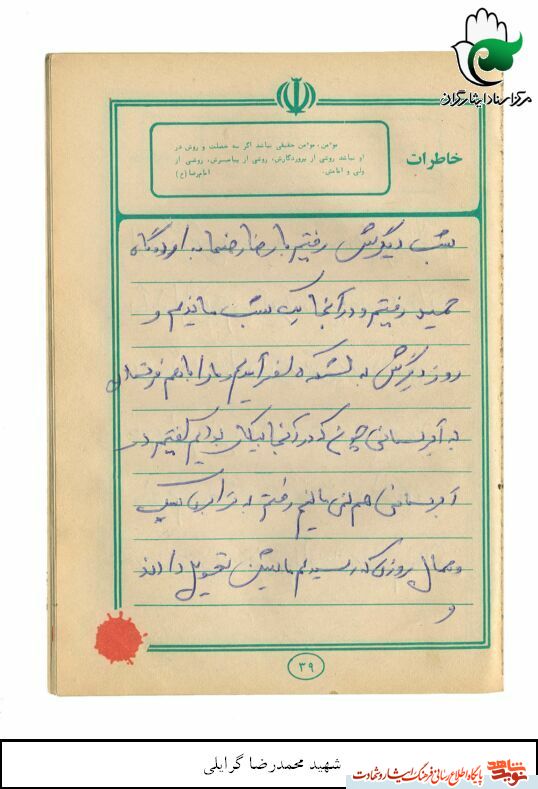 مرکز اسناد ایثارگران
خاطرات
مو'من، مو'من حقیقی نباشد اگر سه خصلت و روش در
او نباشد روشی از پروردگارش، روشی از پیامبرش، روشی از
ولی و امامش.
امام رضا (ع)
شب دیگرش رفتیم با رضا رضما به اردوگاه
حمید رفتیم و در آنجا یک شب ماندیم و
روز دیگرش به لشکر آمدیم و ما را با هم فرستادن
به آبرسانی چون که در آنجا بیکار بودیم گفتیم در
آبرسانی هم نمی مانیم رفتیم به ترابری سپاه
و همان روزی که رسیدیم ماشین تحویل دادند
و
۳۹
شهید محمدرضا گرایلی
نوید شاهد
پایگاه اطلاع رسانی فرهنگ ایثار و شهادت